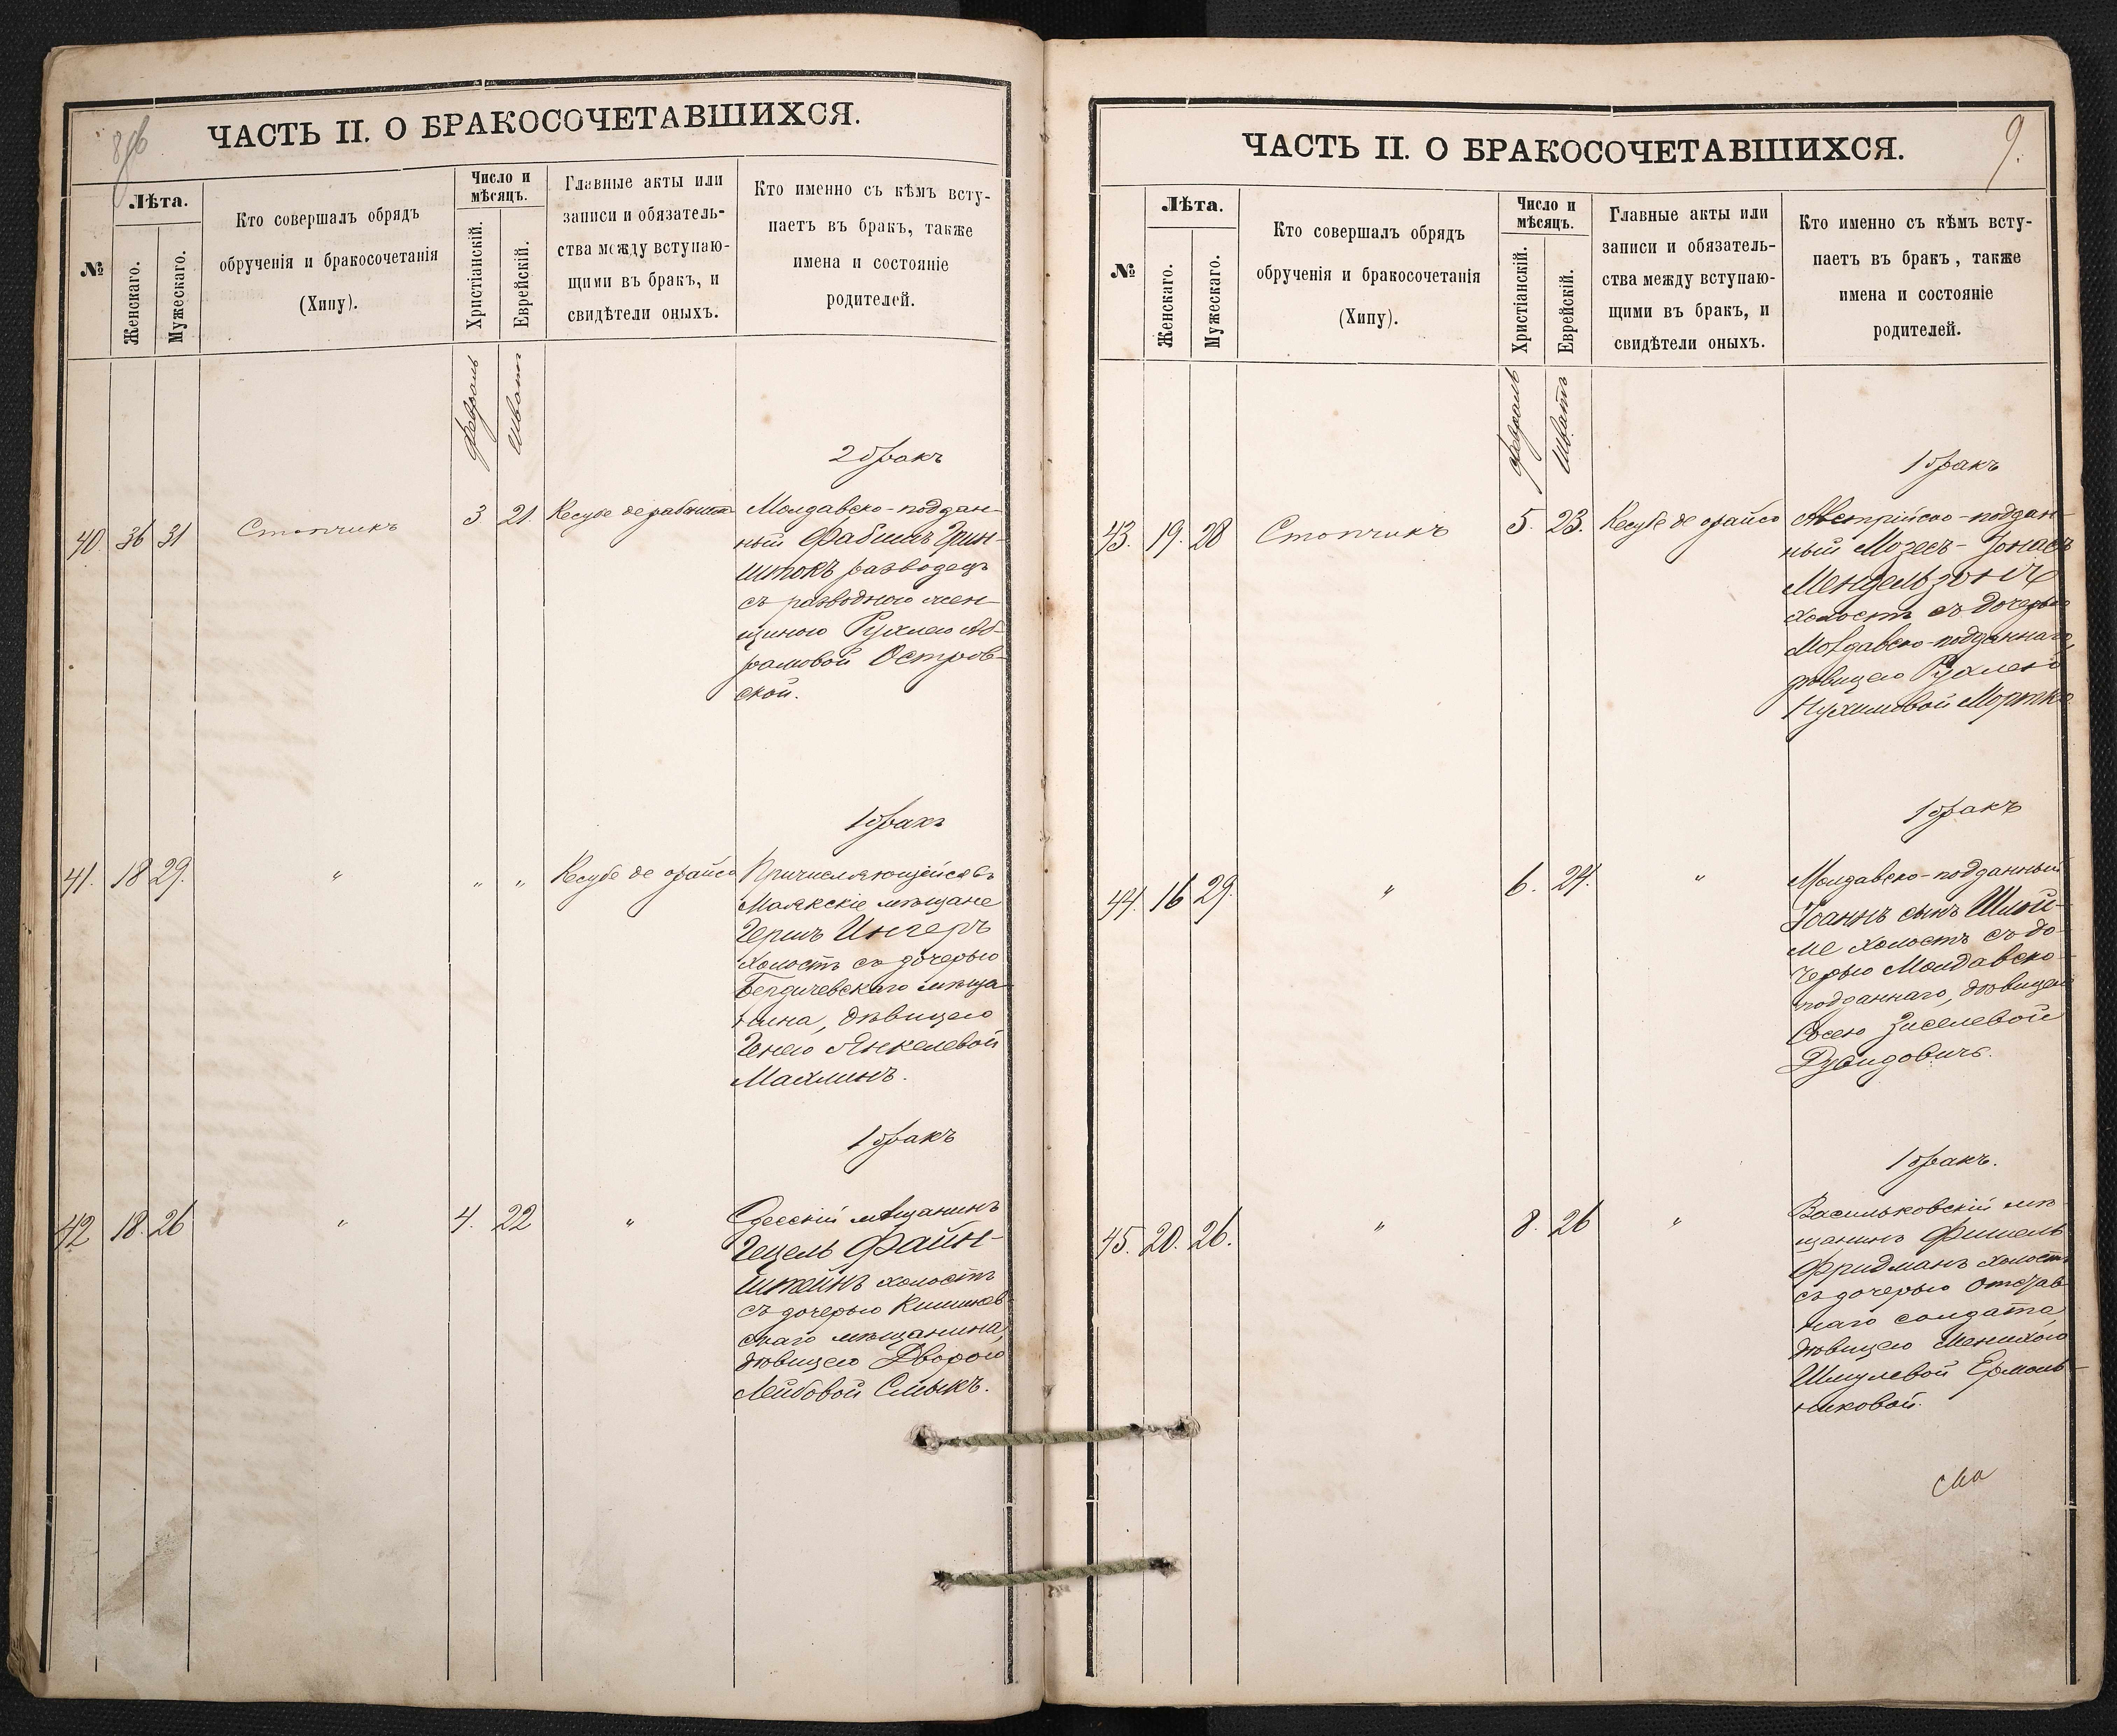 8об.
ЧАСТЬ II. О БРАКОСОЧЕТАВШИХСЯ.
№
Лѣта.
Женскаго.
Мужескаго.
Кто совершалъ обрядъ
обрученія и бракосочетанія
(Хипу).
Число и
мѣсяцъ.
Христіанскій.
Еврейскій.
Главные акты или
записи и обязатель-
ства между вступаю-
щими въ бракъ, и
свидѣтели оныхъ.
Кто именно съ кѣмъ всту-
паетъ въ бракъ, также
имена и состояніе
родителей.
Февраль
Шватъ
2 бракъ
40. 36 31 Стопчикъ 3 21. Кесубе де рабононъ
Молдавско-поддан-
ный Фабишъ Грин-
штокъ разводецъ
съ разводною жен-
щиною Рухлею Аб-
рамовой Островс-
ской.
1 бракъ
41. 18 29. " " " Кесубе де орайсо
Причисляющійся въ
Маякскіе мѣщане
Гершъ Ингеръ
холостъ съ дочерью
Бердичевскаго мѣща-
нина, дѣвицею
Генею Янкелевой
Махлинъ.
1 бракъ
42 18. 26 " 4. 22 "
Одесскій мѣщанинъ
Гецель Файн-
штейнъ холостъ
съ дочерью Кишинев-
скаго мѣщанина,
дѣвицею Дворою
Лейбовой Смыкъ.
9.
ЧАСТЬ II. О БРАКОСОЧЕТАВШИХСЯ.
№
Лѣта.
Женскаго.
Мужескаго.
Кто совершалъ обрядъ
обрученія и бракосочетанія
(Хипу).
Число и
мѣсяцъ.
Христіанскій.
Еврейскій.
Главные акты или
записи и обязатель-
ства между вступаю-
щими въ бракъ, и
свидѣтели оныхъ.
Кто именно съ кѣмъ всту-
паетъ въ бракъ, также
имена и состояніе
родителей.
Февраль
Шватъ
1 бракъ
43. 19. 28 Стопчикъ 5. 23. Кесубе де орайсо
Австрійско-поддан-
ный Мозесъ-Іонасъ
Мендельзонъ
холостъ съ дочерью
Молдавско-подданнаго,
дѣвицею Рухлею
Нухимовой
1 бракъ
44. 16 29. " 6. 24. "
Молдавско-подданный
Іоаннъ сынъ Шлой-
ме холостъ съ до-
черью Молдавско-
подданнаго, дѣвицею
Сосею Зиселевой
Давидовичъ.
1 бракъ.
45. 20. 26. " 8. 26 "
Васильковскій мѣ-
щанинъ Фишель
Фридманъ холостъ
съ дочерью отстав-
наго солдата,
дѣвицею Менихою
Шмулевой Ермоль-
никовой.